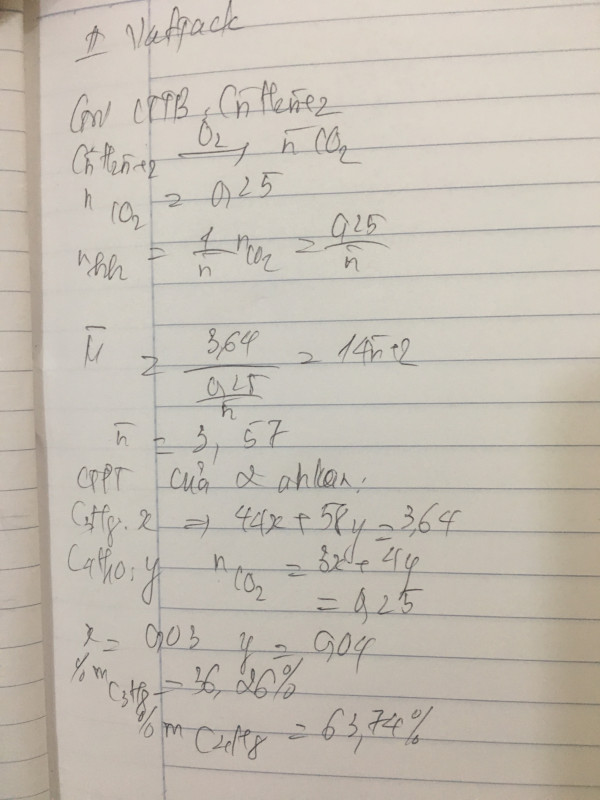 Gọi CTTB: Cn̄H2n̄+2
Cn̄H2n̄+2 —O2→ n̄ CO2
nCO2 = 0,25
nhh = 1/n̄ nCO2 = 0,25/n̄
M̄ = 3,64/(0,25/n̄) = 14n̄+2
n̄ = 3,57
CTPT của 2 ankan:
C3H8: x => 44x + 58y = 3,64
C4H10: y nCO2 = 3x + 4y
= 0,25
x = 0,03 y = 0,04
%mC3H8 = 36,26%
%mC4H8 = 63,74%